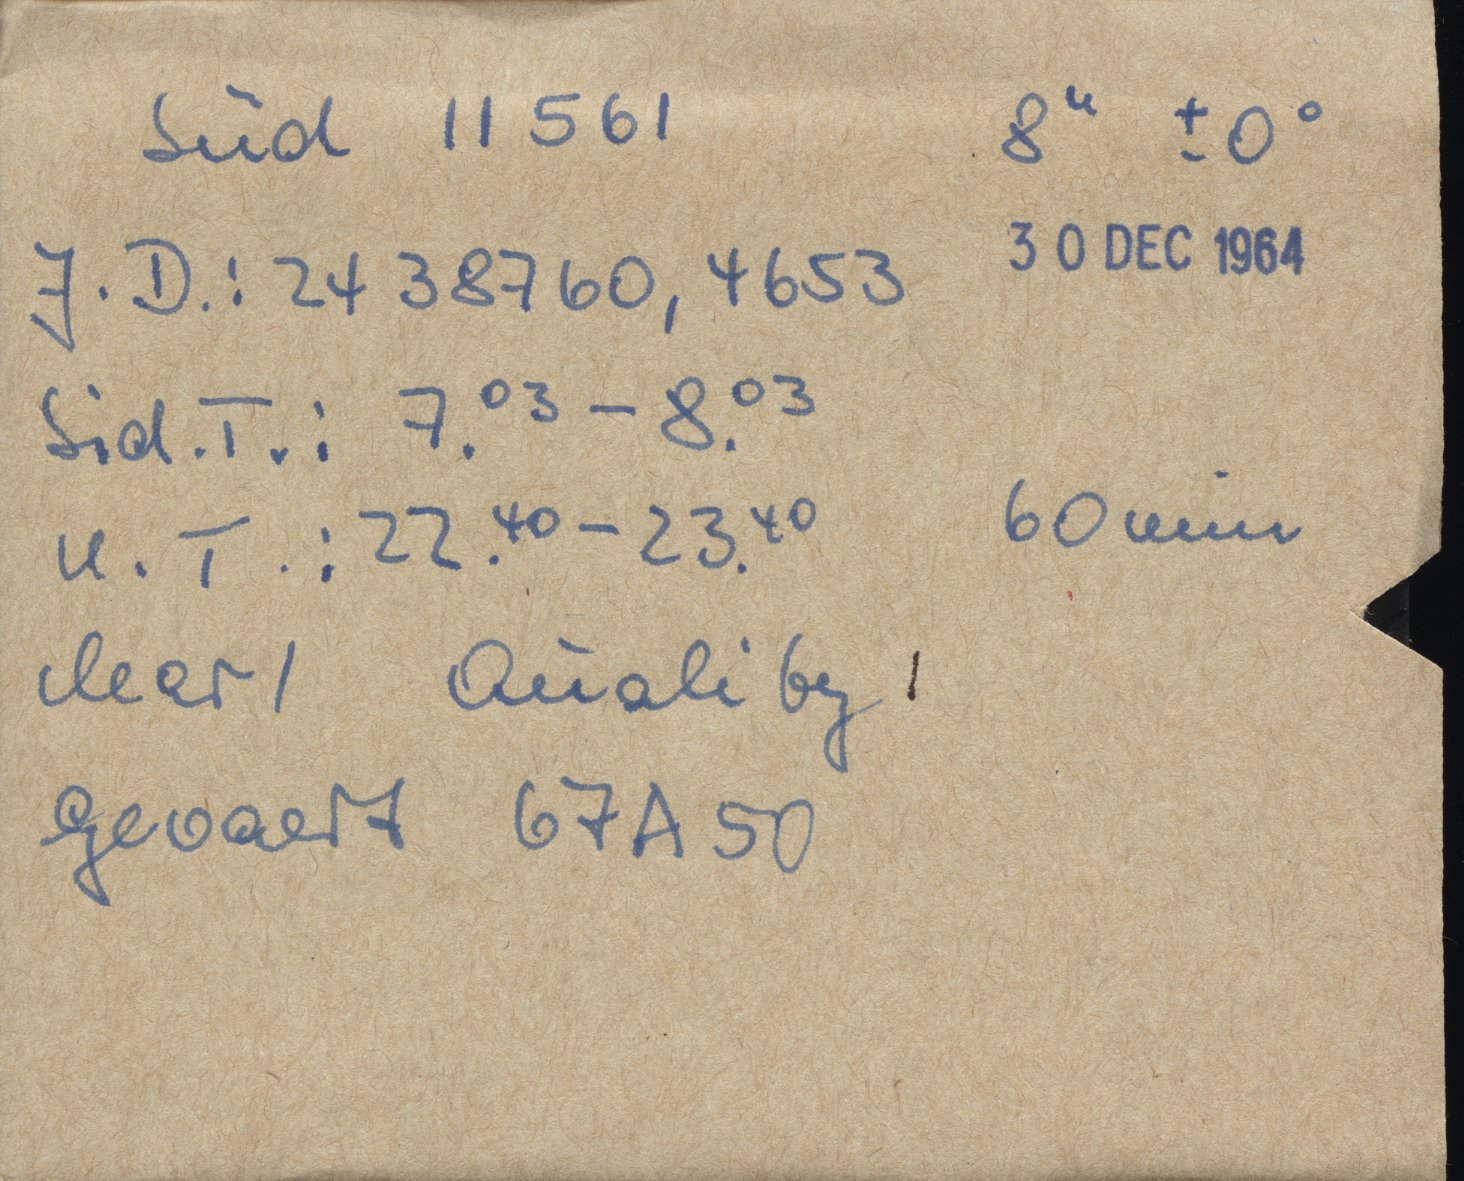 Süd 11561 8ᵘ ±0°
30 DEC 1964
J.D.: 2438760,4653
Sid.T.: 7.⁰³ – 8.⁰³
U.T.: 22.⁴⁰ – 23.⁴⁰ 60 min
clear 1 Quality 1
Gevaert 67A50